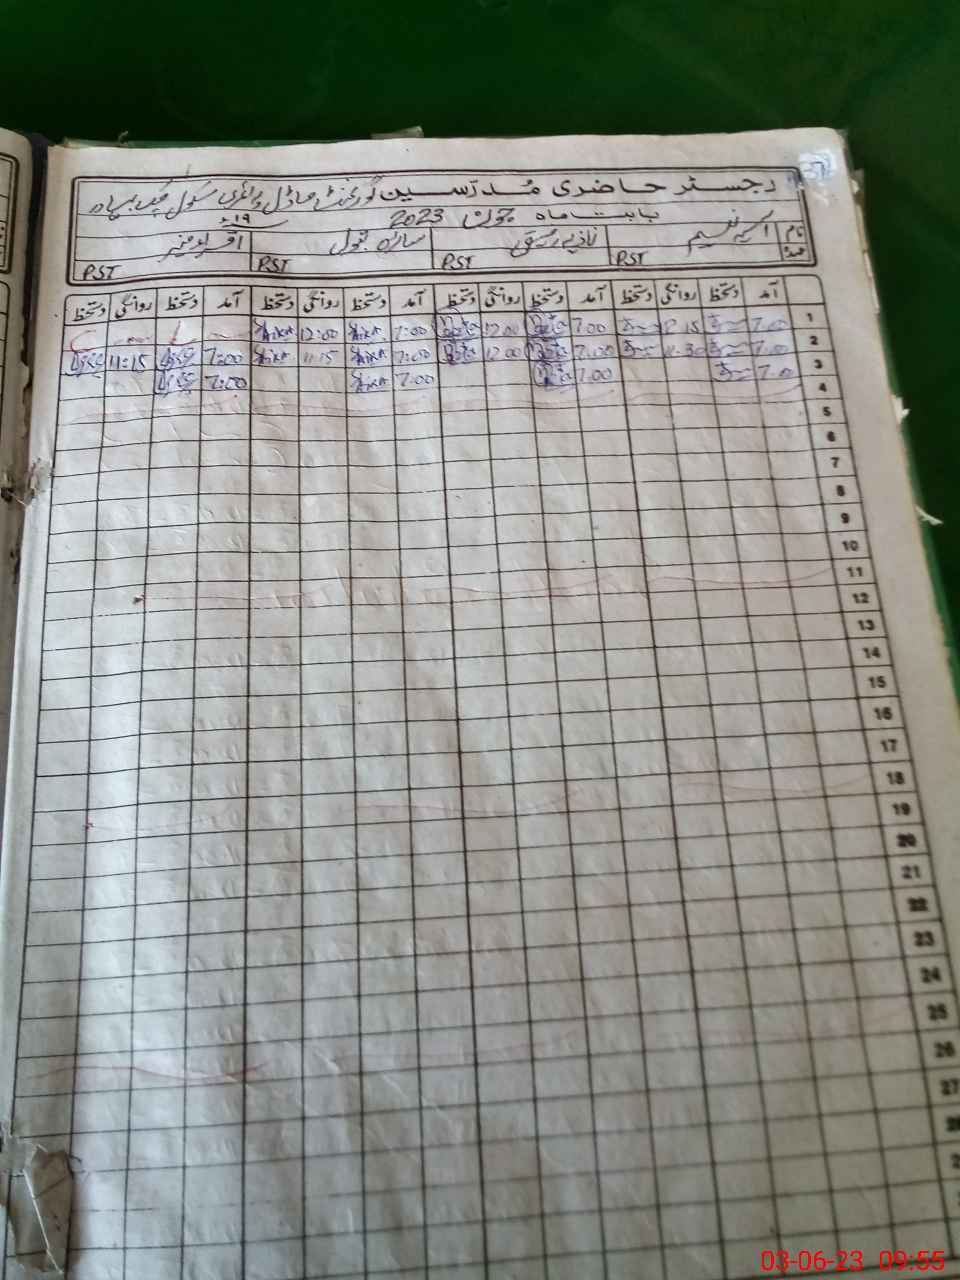 رجسٹر حاضری مُدرّسین گورنمنٹ ماڈل پرائمری سکول چک
بابت ماہ جون 2023ء
نام آسیہ نسیم نازیہ رفیق سائرہ بتول اقراء منیر
عہدہ PST PST PST PST
آمد دستخط روانگی دستخط آمد دستخط روانگی دستخط آمد دستخط روانگی دستخط آمد دستخط روانگی دستخط
1 7.00 12.15 7.00 12.00 7:00 12:00
2 7.00 11.30 7.00 12.00 7:00 11:15 7:00 11:15
3 7.00 7.00 7.00 7:00
4
5
6
7
8
9
10
11
12
13
14
15
16
17
18
19
20
21
22
23
24
25
26
27
03-06-23 09:55